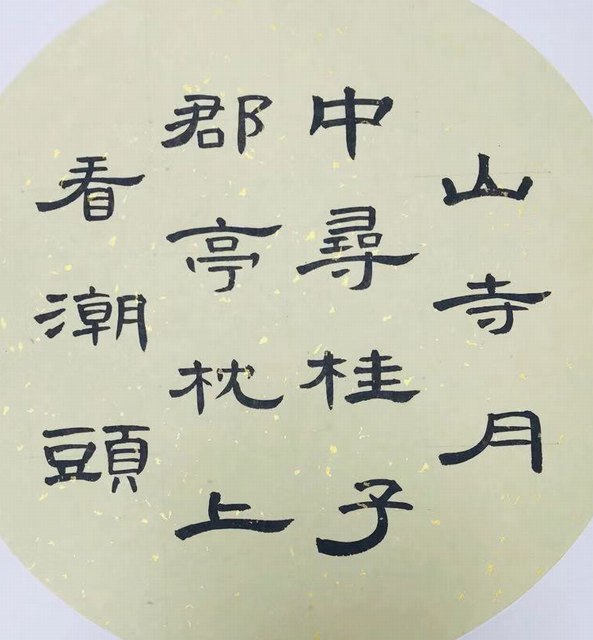 山寺月
中尋桂子
郡亭枕上
看潮頭